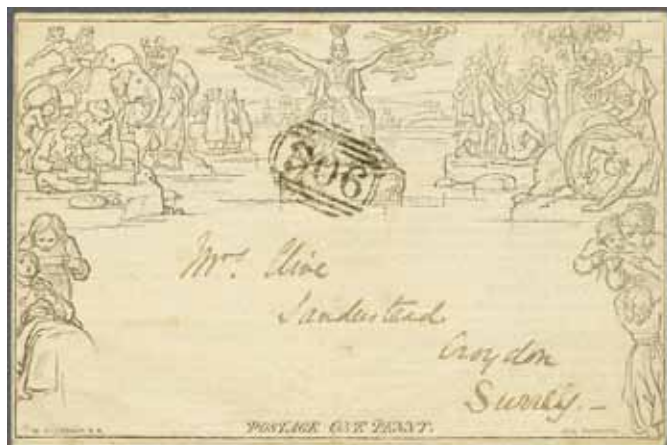 206
Mrs. Clive
Sanderstead
Croydon
Surrey. —
POSTAGE ONE PENNY.